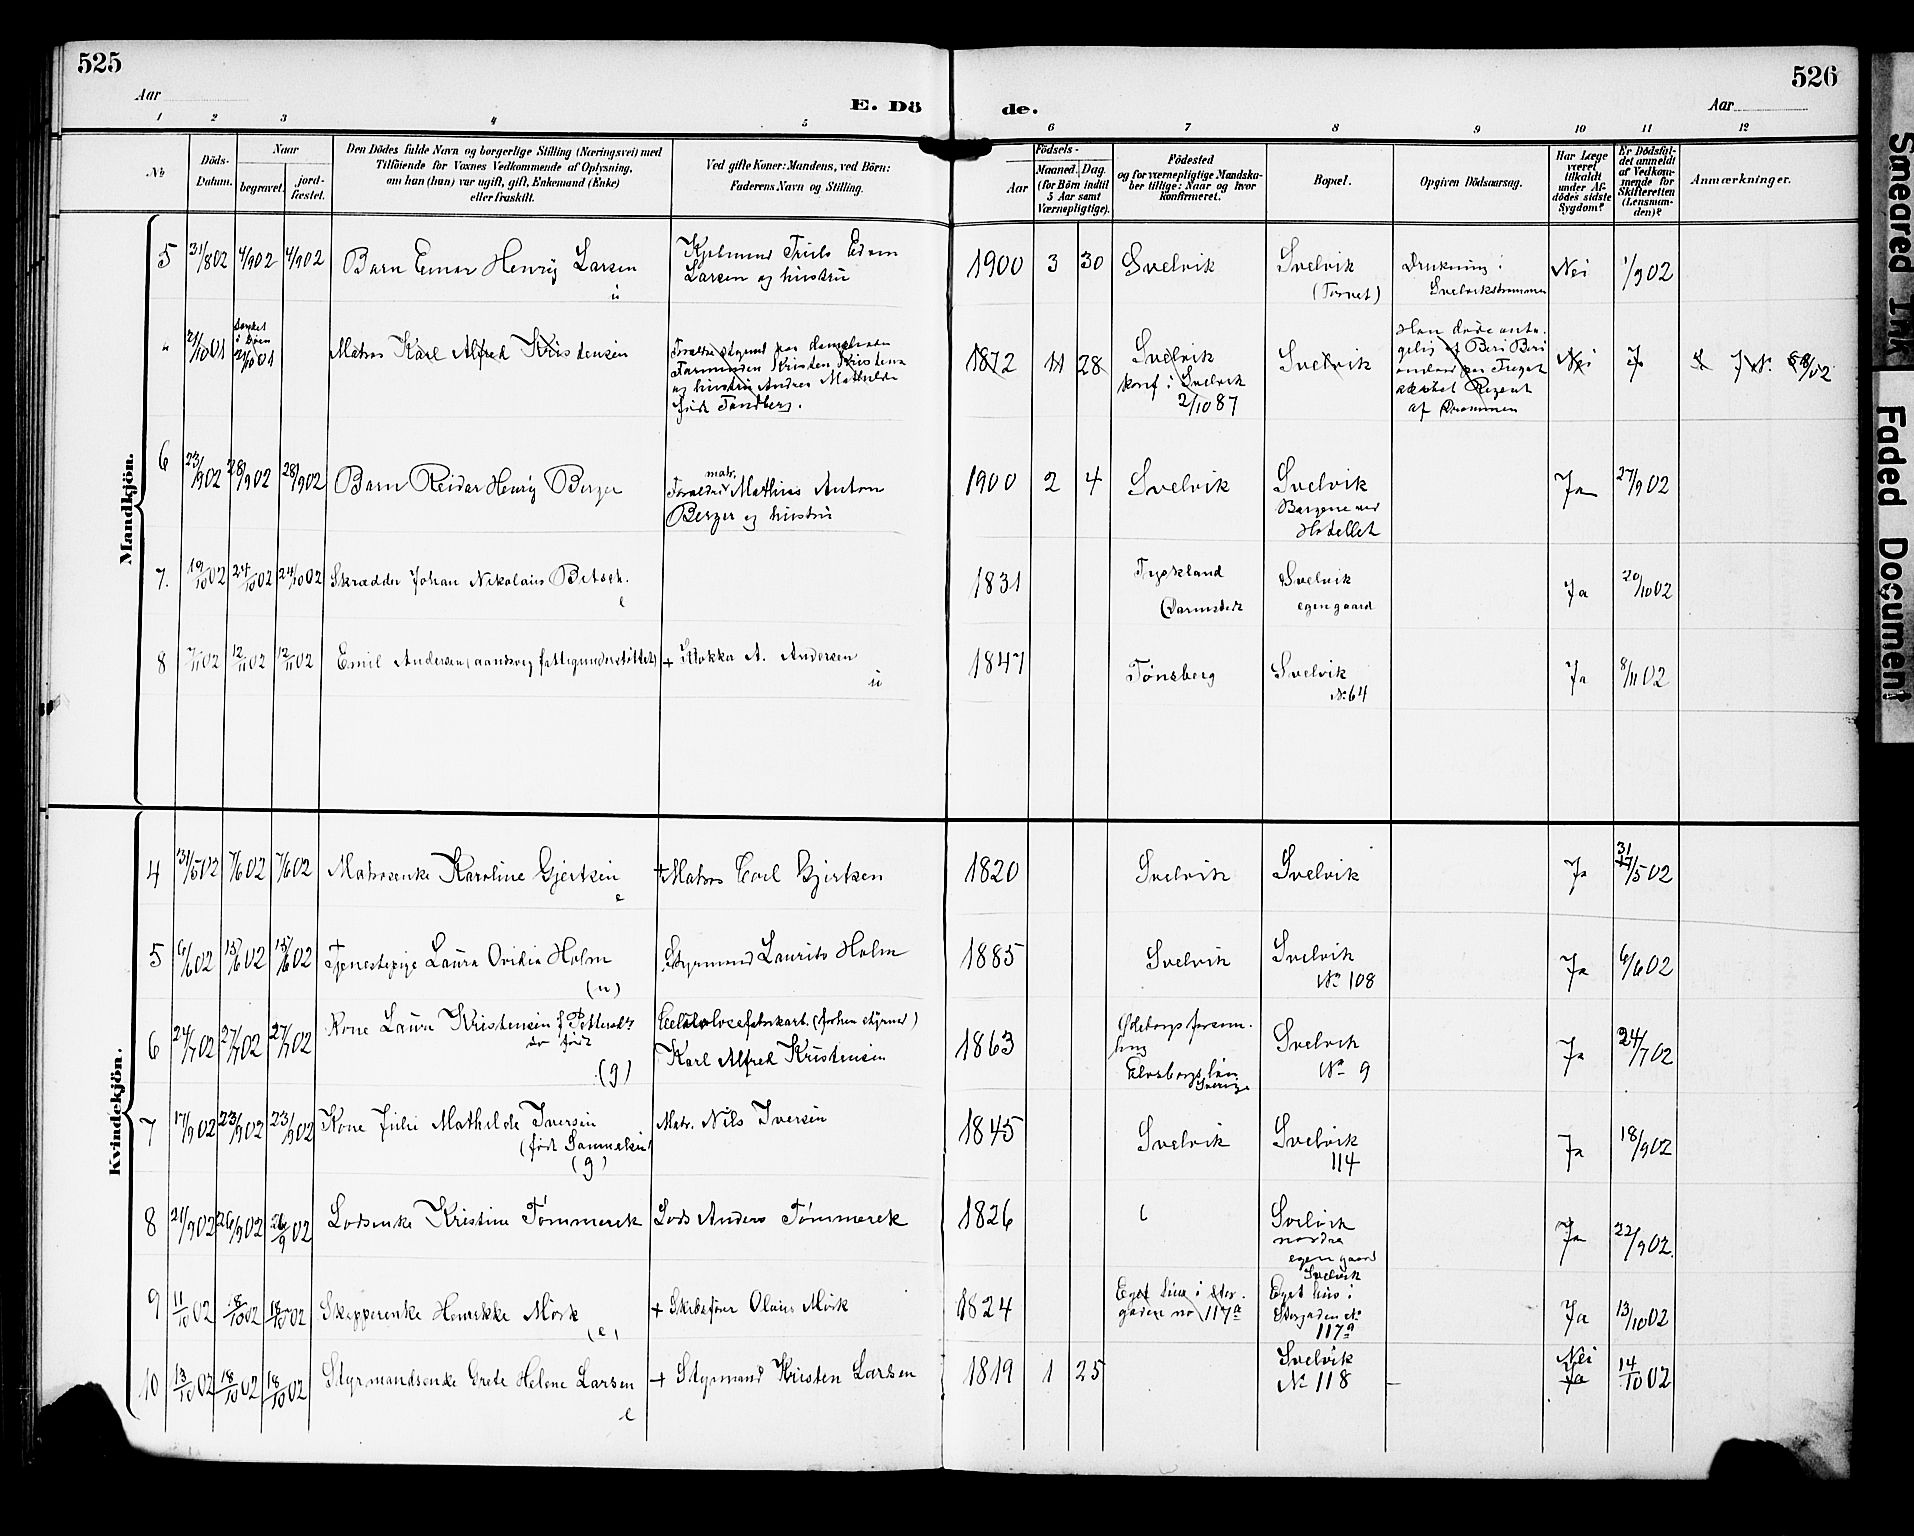 525
526
Aar
E. Dö
de.
Aar
1 2 3 4 5 6 7 8 9 10 11 12
No
Döds-
Datum.
Naar
begravet.
jord-
fæstet.
Den Dödes fulde Navn og borgerlige Stilling (Næringsvei) med
Tilföiende for Voxnes Vedkommende af Oplysning,
om han (hun) var ugift, gift, Enkemand (Enke)
eller fraskilt.
Ved gifte Koner: Mandens, ved Börn:
Faderens Navn og Stilling.
Födsels-
Aar
Maaned. Dag.
(for Börn indtil
5 Aar samt
Værnepligtige).
Födested
og for værnepligtige Mandska-
ber tillige: Naar og hvor
konfirmeret.
Bopæl.
Opgiven Dödsaarsag.
Har Læge
været
tilkaldt
under Af-
dödes sidste
Sygdom?
Er Dödsfal-
det anmeldt
af Vedkom-
mende for
Skifteretten
(Lensman-
den)?
Anmærkninger.
Mandkjön.
5 31/8 02 4/9 02 4/9 02 Barn Einar Henry Larsen
u
Larsen og hustru
1900 3 30 Svelvik Svelvik
(Torvet)
Drukning i
Svelvikstrømmen
Nei 1/9 02
21/10 01
Matros Karl Alfred Kristensen
Kristen
og hustru Andrea Mathilde
født Tandberg.
1872 11 28 Svelvik
konf i Svelvik
2/10 87
Svelvik
Han døde anta-
gelig af Beri Beri
af Drammen
Nei
6 23/9 02 28/9 02 28/9 02 Barn Reidar Henry Berger
matr.
Forældre Mathias Anton
Berger og hustru
1900 2 4 Svelvik Svelvik
Hotellet
Ja 27/9 02
7. 19/10 02 24/10 02 24/10 02 Skrædder Johan Nikolaus
e
1831 Tyskland
(Darmstadt
Svelvik
egen gaard
Ja 20/10 02
8 7/11 02 12/11 02 12/11 02 Emil Andersen (aandsvag fattigunderstøttet)
+ Klokker A. Andersen
u
1847 Tønsberg Svelvik
No 64
Ja 8/11 02
Kvindekjön.
4 31/5 02 7/6 02 7/6 02 Matrosenke Karoline Gjertsen
e
+ Matros Gjertsen
1820 Svelvik Svelvik Ja 31/5 02
5 6/6 02 15/6 02 15/6 02 Tjenestepige Laura Ovidia Holm
(u)
Styrmand Laurits Holm
1885 Svelvik Svelvik
No 108
Ja 6/6 02
6 24/7 02 27/7 02 27/7 02 Kone Laura Kristensen f
født
(g)
Cellulosefabrikarb. (forhen styrmd)
Karl Alfred Kristensen
1863
Elvsborgs län
Sverige
Svelvik
No 9
Ja 24/7 02
7 17/9 02 23/9 02 23/9 02 Kone Juli Mathilde Iversen
(født Sammelsen)
(g)
Matr. Nils Iversen
1845 Svelvik Svelvik
114
Ja 18/9 02
8 21/9 02 26/9 02 26/9 02 Lodsenke Kristine Tømmerek
Lods Anders Tømmerek
1826 Svelvik
nordre
egen gaard
Ja 22/9 02
9 11/10 02 18/10 02 18/10 02 Skipperenke Henrikke Mørk
(e)
+ Skibsfører Olaus Mørk
1824 Eget hus i Stor-
gaden no 117a
Svelvik
Eget hus i
Storgaden No
117a
Ja 13/10 02
10 13/10 02 18/10 02 18/10 02 Styrmandsenke Grete Helene Larsen
e
+ Styrmand Kristen Larsen
1819 1 25 Svelvik
No 118
Nei
Ja
14/10 02
Smeared Ink
Faded Document